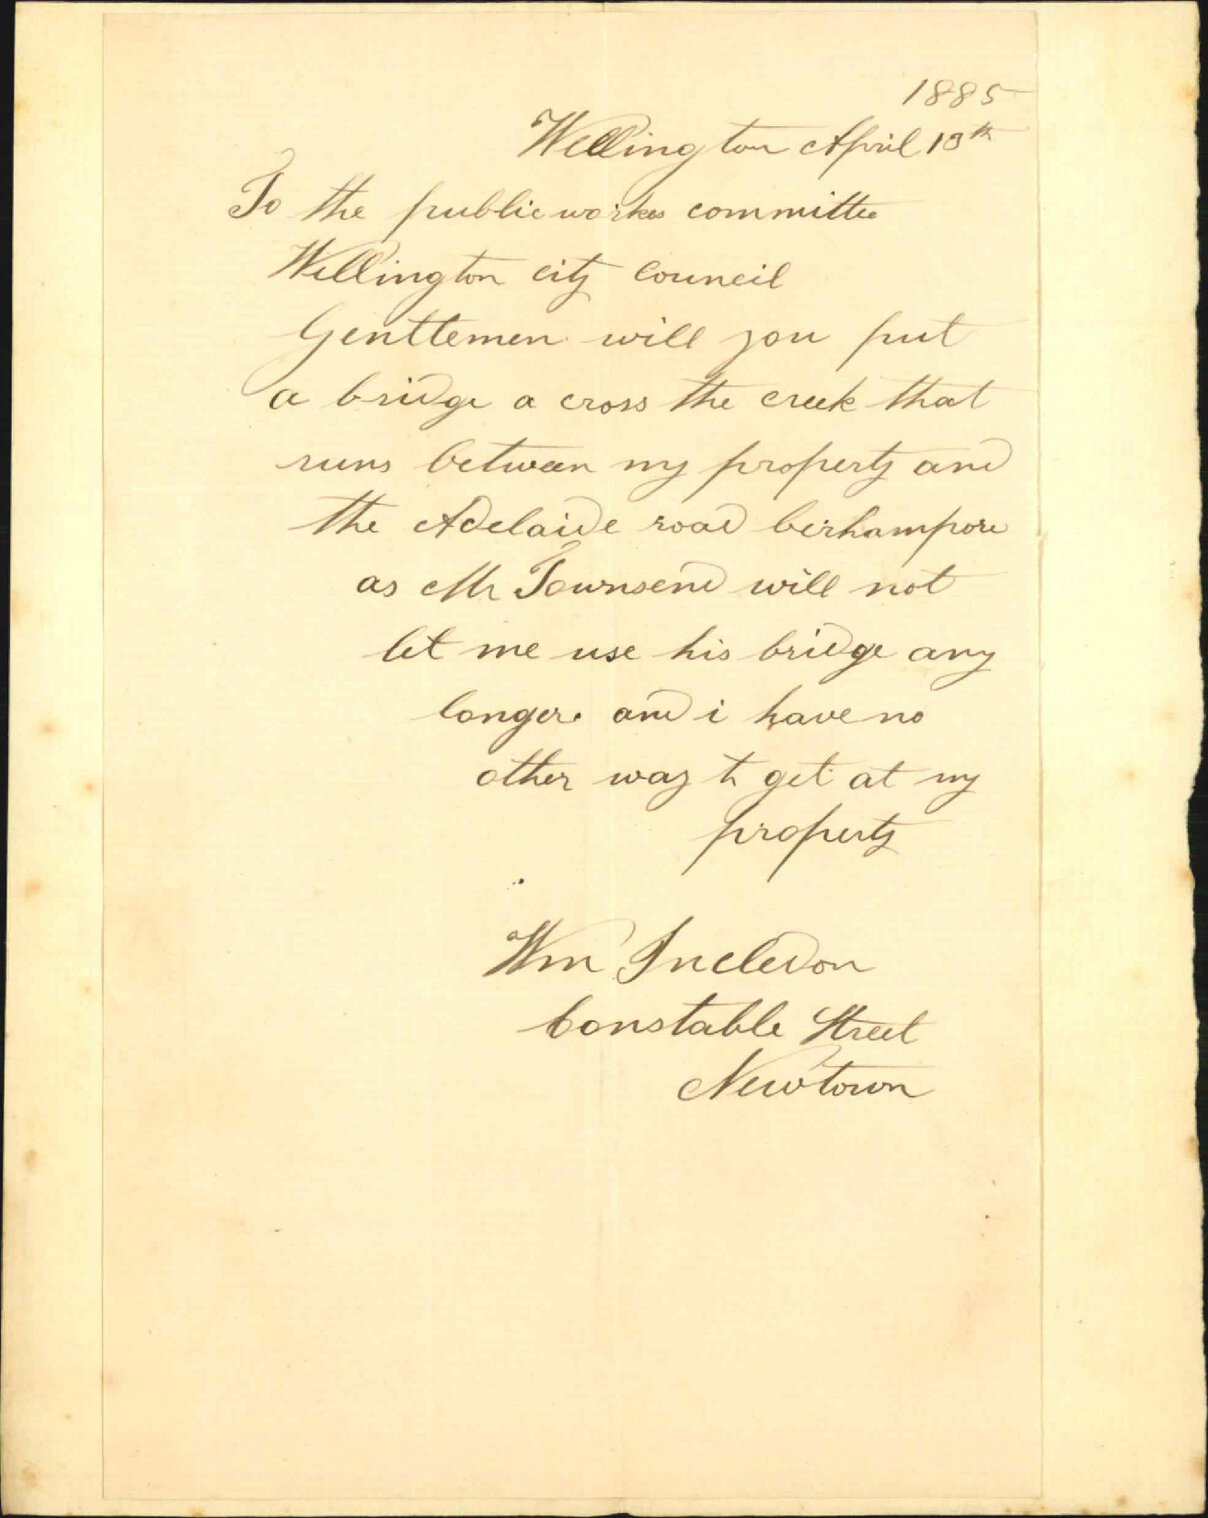 1885
Wellington April 13th
To the public workes committee
Wellington city Council
Genttlemen will you put
a bridge a cross the creek that
runs between my property and
the Adelaide road berhampore
as Mr Townsend will not
let me use his bridge any
longer and i have no
other way to get at my
property
Wm Incledon
Constable Street
Newtown